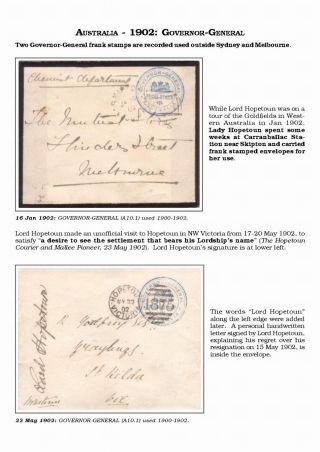 AUSTRALIA - 1902: GOVERNOR-GENERAL
Two Governor-General frank stamps are recorded used outside Sydney and Melbourne.
Chemist department
The Mutual Store
Flinders Street
Melbourne
While Lord Hopetoun was on a
tour of the Goldfields in West-
ern Australia in Jan 1902,
Lady Hopetoun spent some
weeks at Carranballac Sta-
tion near Skipton and carried
frank stamped envelopes for
her use.
16 Jan 1902: GOVERNOR-GENERAL (A10.1) used 1900-1902.
Lord Hopetoun made an unofficial visit to Hopetoun in NW Victoria from 17-20 May 1902, to
satisfy "a desire to see the settlement that bears his Lordship's name" (The Hopetoun
Courier and Mallee Pioneer, 23 May 1902). Lord Hopetoun's signature is at lower left.
HOPETOUN
MY 22
02
VICTORIA
1875
Lord Hopetoun
St Kilda
Vic
The words "Lord Hopetoun"
along the left edge were added
later. A personal handwritten
letter signed by Lord Hopetoun,
explaining his regret over his
resignation on 15 May 1902, is
inside the envelope.
22 May 1902: GOVERNOR-GENERAL (A10.1) used 1900-1902.